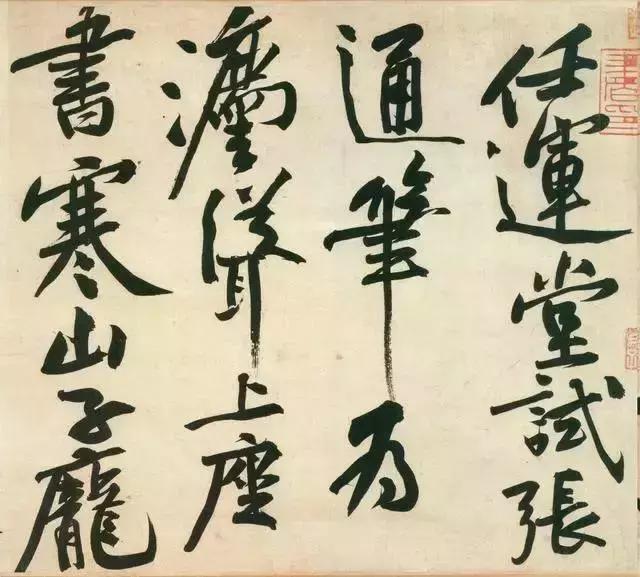 任運堂試張
通筆為
灋聳上座
書寒山子龐